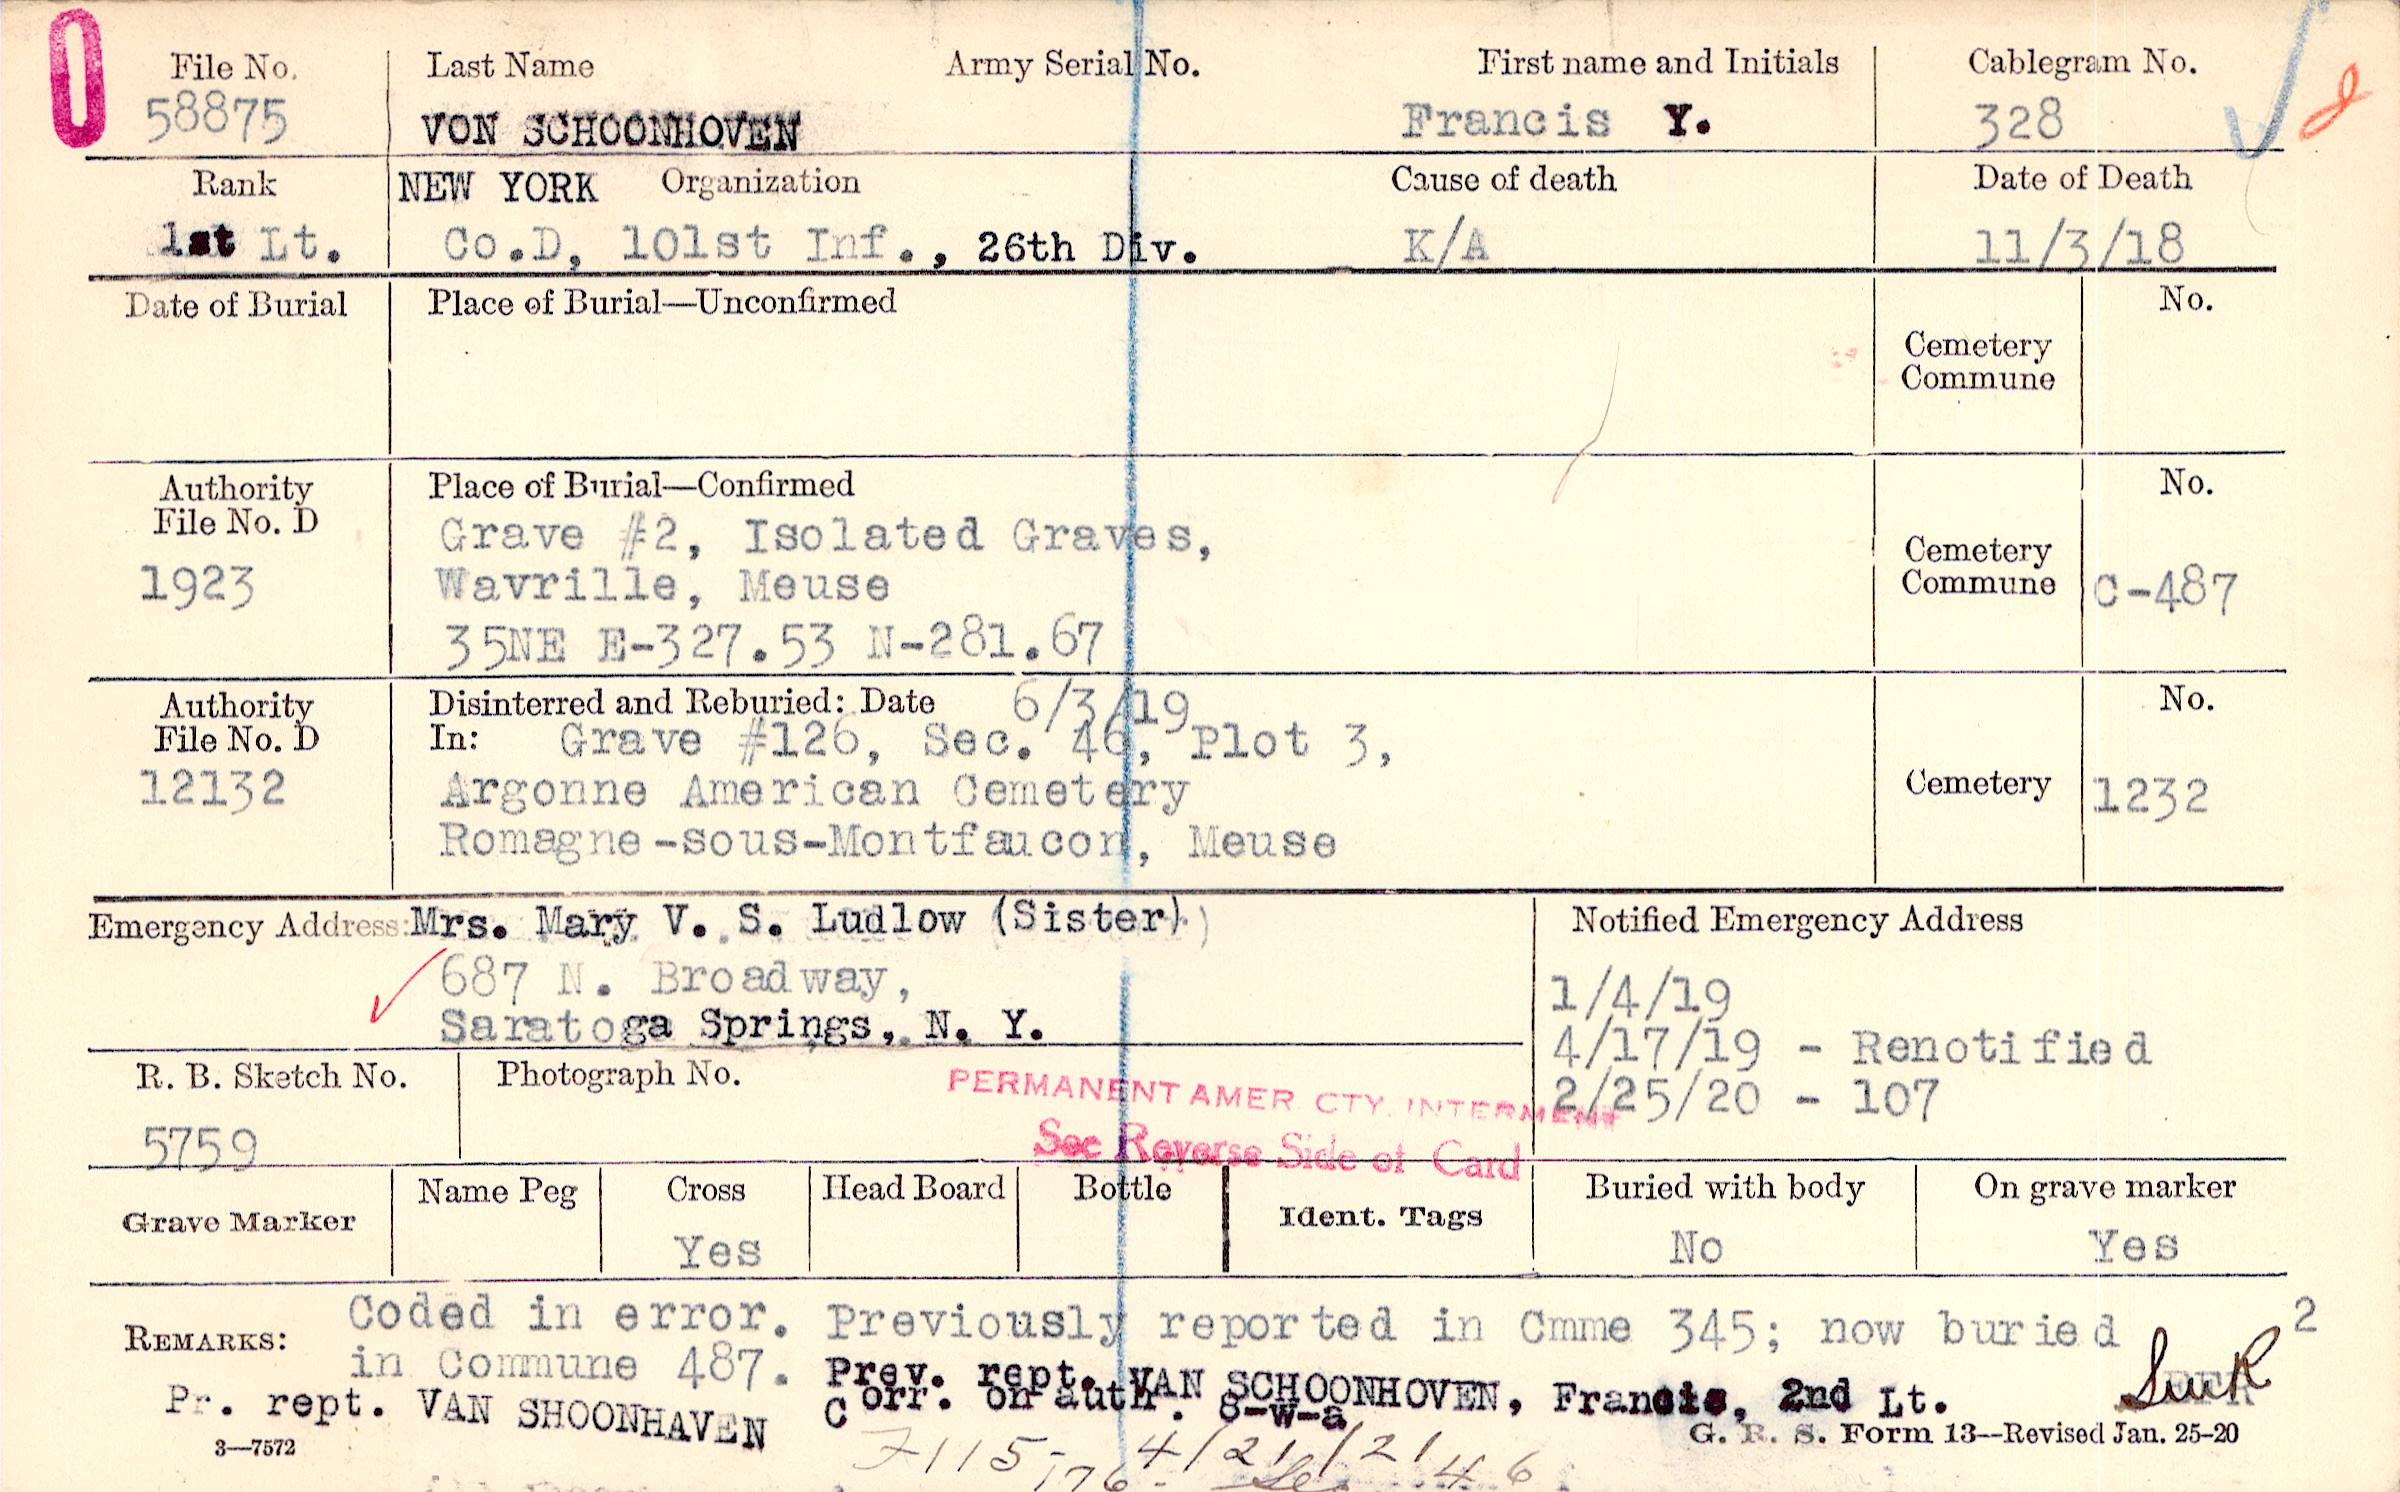 File No. Last Name Army Serial No. First name and Initials Cablegram No.
58875 VON SCHOONHOVEN Francis Y. 328
Rank NEW YORK Organization Cause of death Date of Death
1st Lt. Co.D, 101st Inf., 26th Div. K/A 11/3/18
Date of Burial Place of Burial—Unconfirmed No.
Cemetery
Commune
Authority Place of Burial—Confirmed No.
File No. D Grave #2, Isolated Graves, Cemetery
1923 Wavrille, Meuse Commune C-487
35NE E-327.53 N-281.67
Authority Disinterred and Reburied: Date 6/3/19 No.
File No. D In: Grave #126, Sec. 46, Plot 3,
12132 Argonne American Cemetery Cemetery 1232
Romagne-sous-Montfaucon, Meuse
Emergency Address: Mrs. Mary V. S. Ludlow (Sister) Notified Emergency Address
687 N. Broadway, 1/4/19
Saratoga Springs, N. Y. 4/17/19 - Renotified
R. B. Sketch No. Photograph No. 2/25/20 - 107
PERMANENT AMER. CTY. INTERMENT
5759 See Reverse Side of Card
Grave Marker Name Peg Cross Head Board Bottle Ident. Tags Buried with body On grave marker
Yes No Yes
REMARKS: Coded in error. Previously reported in Cmme 345; now buried 2
in Commune 487. Prev. rept. VAN SCHOONHOVEN, Francis, 2nd Lt.
Pr. rept. VAN SHOONHAVEN Corr. on auth. 8-w-a
3—7572 G. R. S. Form 13—Revised Jan. 25-20
4/21/21